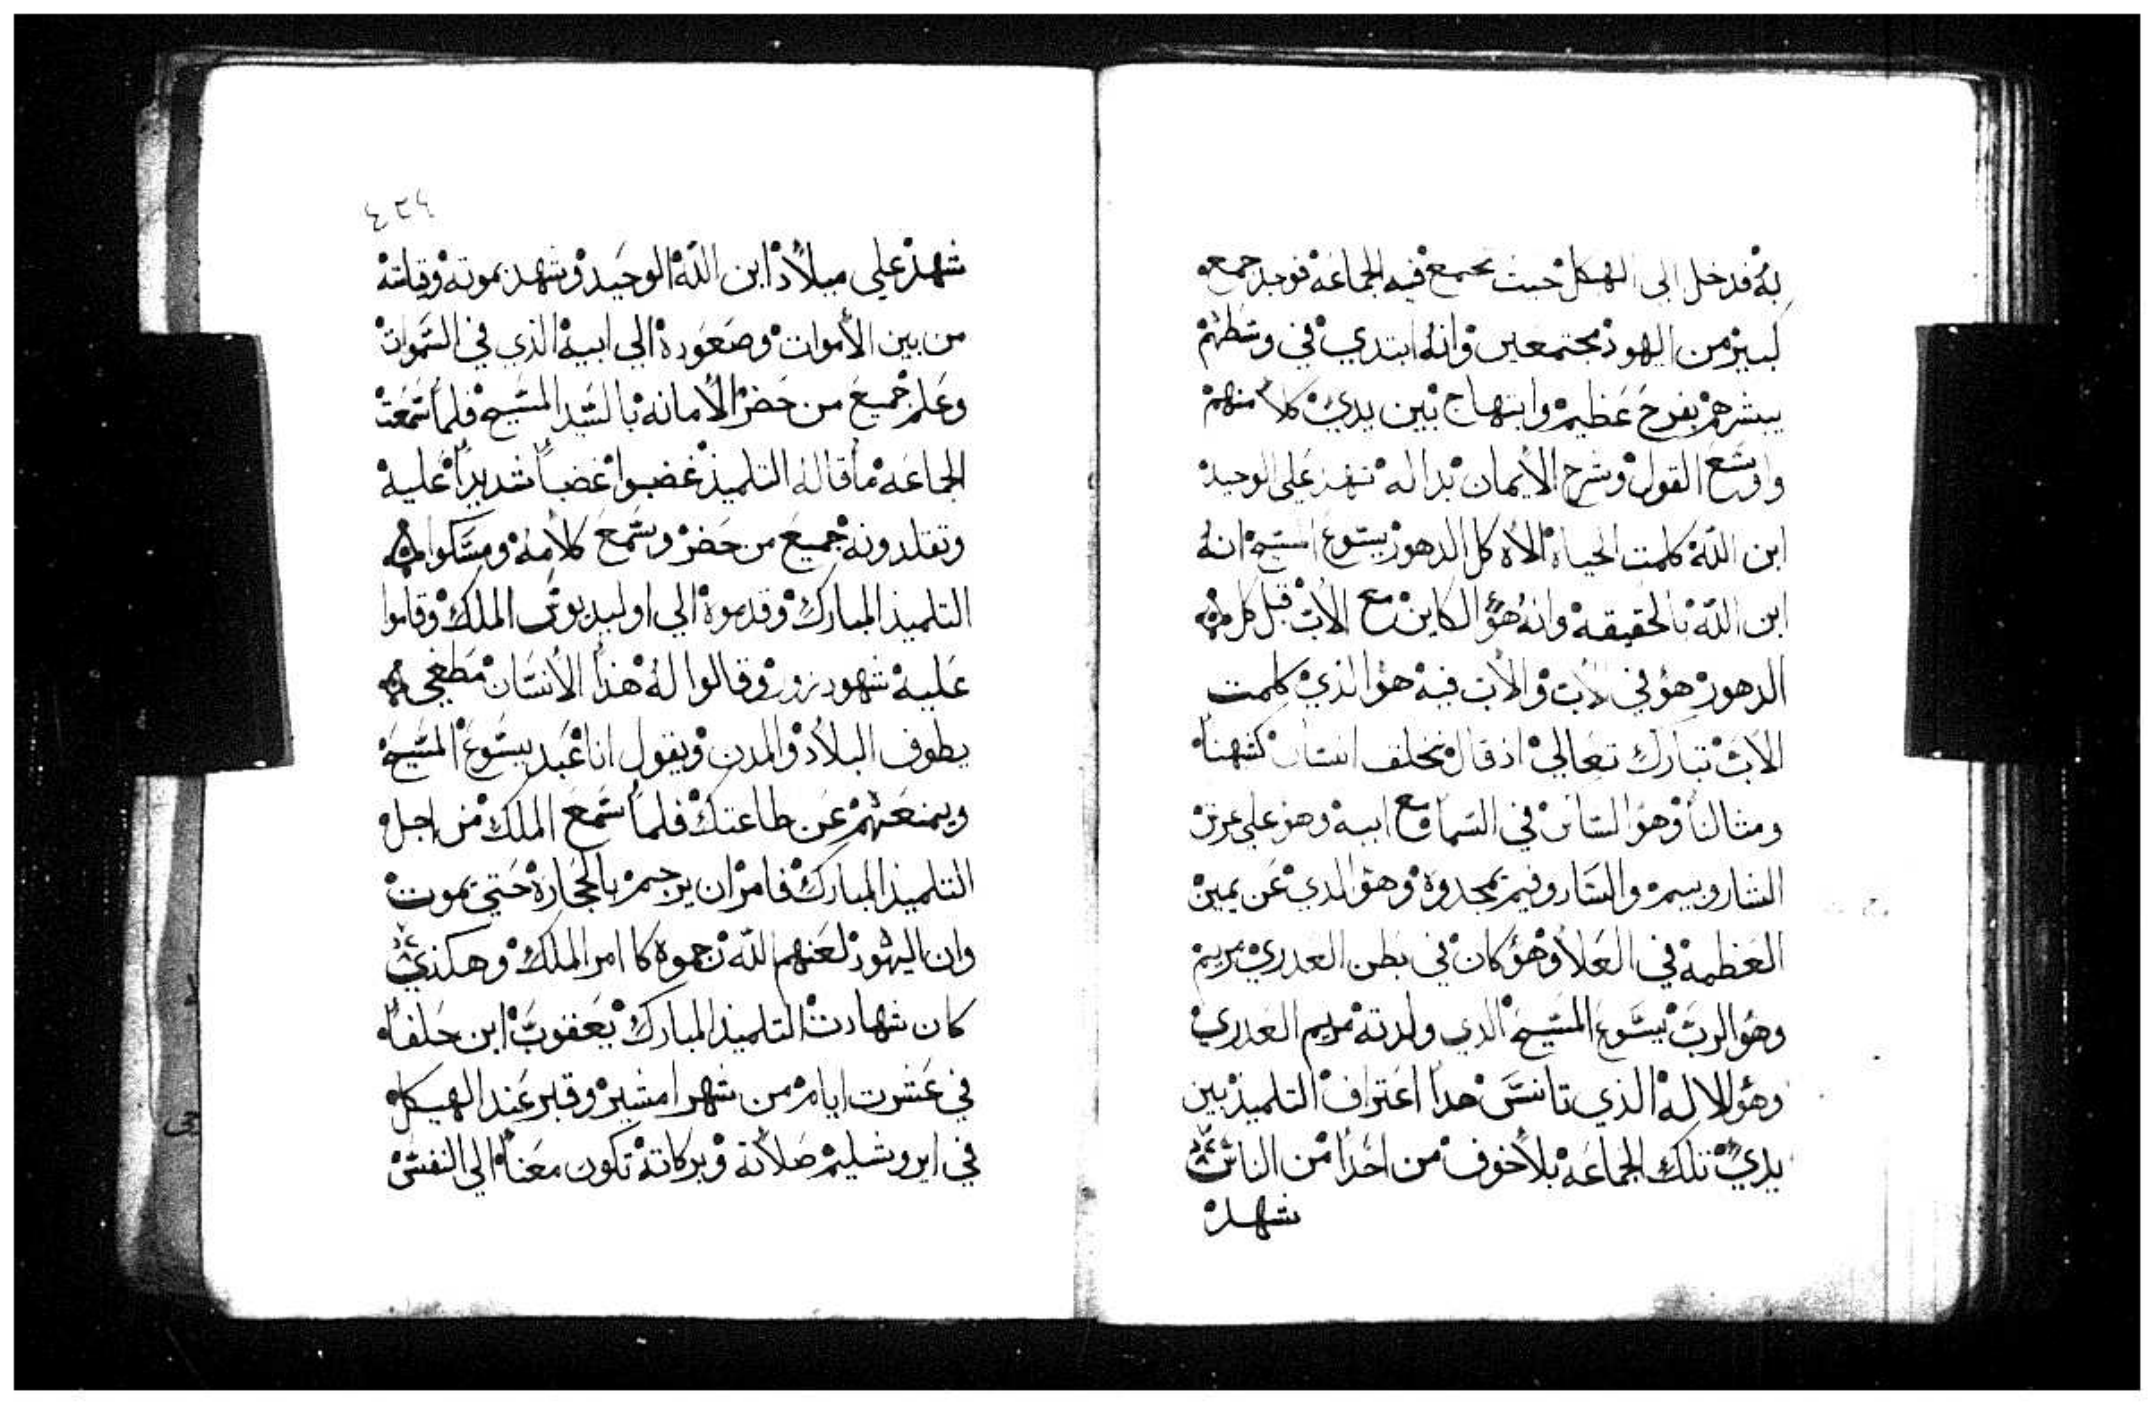 به فدخل الى الهيكل حيت تجتمع فيه الجماعه فوجد جمعه
كبير من اليهود مجتمعين وانه ابتدي في وسطهم
يبشرهم بفرح عظيم وابتهاج بين يدي كلا منهم
واوسع القول وشرح الايمان بداله تشهد على الوحيد
ابن الله كلمت الحياه الاه كل الدهور يسوع المسيح انه
ابن الله بالحقيقه وانه هو الكاين مع الاب قبل كل
الدهور هو في الاب والاب فيه هو الذي كلمت
الاب تبارك تعالي اذ قال نخلف انسان كشبهنا
ومثالنا وهو الساكن في السما مع ابيه وهو على
الشاروبيم والساروفيم يمجدوه وهو الدي عن يمين
العظمه في العلا وهو كان في بطن العدري مريم
وهو الرب يسوع المسيح الدي ولدته مريم العدري
وهو الاله الذي تانس هدا اعتراف التلميذ بين
يدي تلك الجماعه بلا خوف من احدا من الناس
شهد
٤٢٤
شهد علي ميلاد ابن الله الوحيد وشهد بموته وقيامته
من بين الاموات وصعوده الي ابيه الذي في السموات
وعلم جميع من حضر الامانه بالسيد المسيح فلما سمعت
الجماعه ما قاله التلميذ غضبوا غضباً شديداً عليه
وتقلدونه جميع من حضر وسمع كلامه ومسكوا
التلميذ المبارك وقدموه الي اوليديوس الملك وقاموا
عليه شهود زور وقالوا له هذا الانسان مطغي
يطوف البلاد والمدن ويقول انا عبد يسوع المسيح
ويمنعهم عن طاعتك فلما سمع الملك من اجل
التلميذ المبارك فامر ان يرجم بالحجاره حتي يموت
وان اليهود لعنهم الله رجموه كا امر الملك وهكذي
كان شهادت التلميذ المبارك يعقوب ابن حلفا
في عشرت ايام من شهر امشير وقبر عند الهيكل
في ايروشليم صلاته وبركاته تكون معنا الي النفس